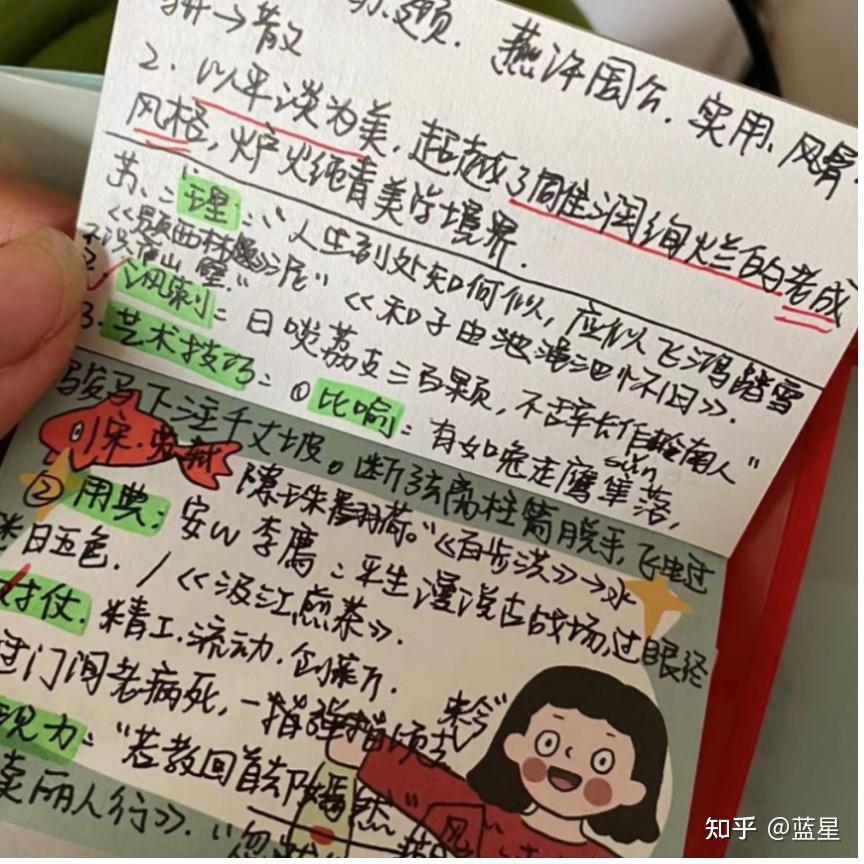 骈→散
题. 燕许国公. 实用、风骨.
2. 以平淡为美, 超越了圆佳润绚烂的老成
风格, 炉火纯青美学境界.
苏:
理: "人生到处知何似, 应似飞鸿踏雪
泥" 《和子由渑池怀旧》.
《题西林壁》
讽刺: 日啖荔支三百颗, 不辞长作岭南人"
3. 艺术技巧: ① 比喻: 有如兔走鹰隼落,
sǔn
骏马下注千丈坡。断弦离柱箭脱手, 飞电过
隙珠翻荷。" 《百步洪》→水
宋·苏轼
② 用典: 安 李廌: 平生漫说古战场, 过眼终
迷日五色. / 《汲江煎茶》.
对仗. 精工. 流动. 创新.
过门间老病死, 一弹指顷去来今"
现力: "若教回首却嫣然"
丽人行》. "忽
风
知乎 @蓝星